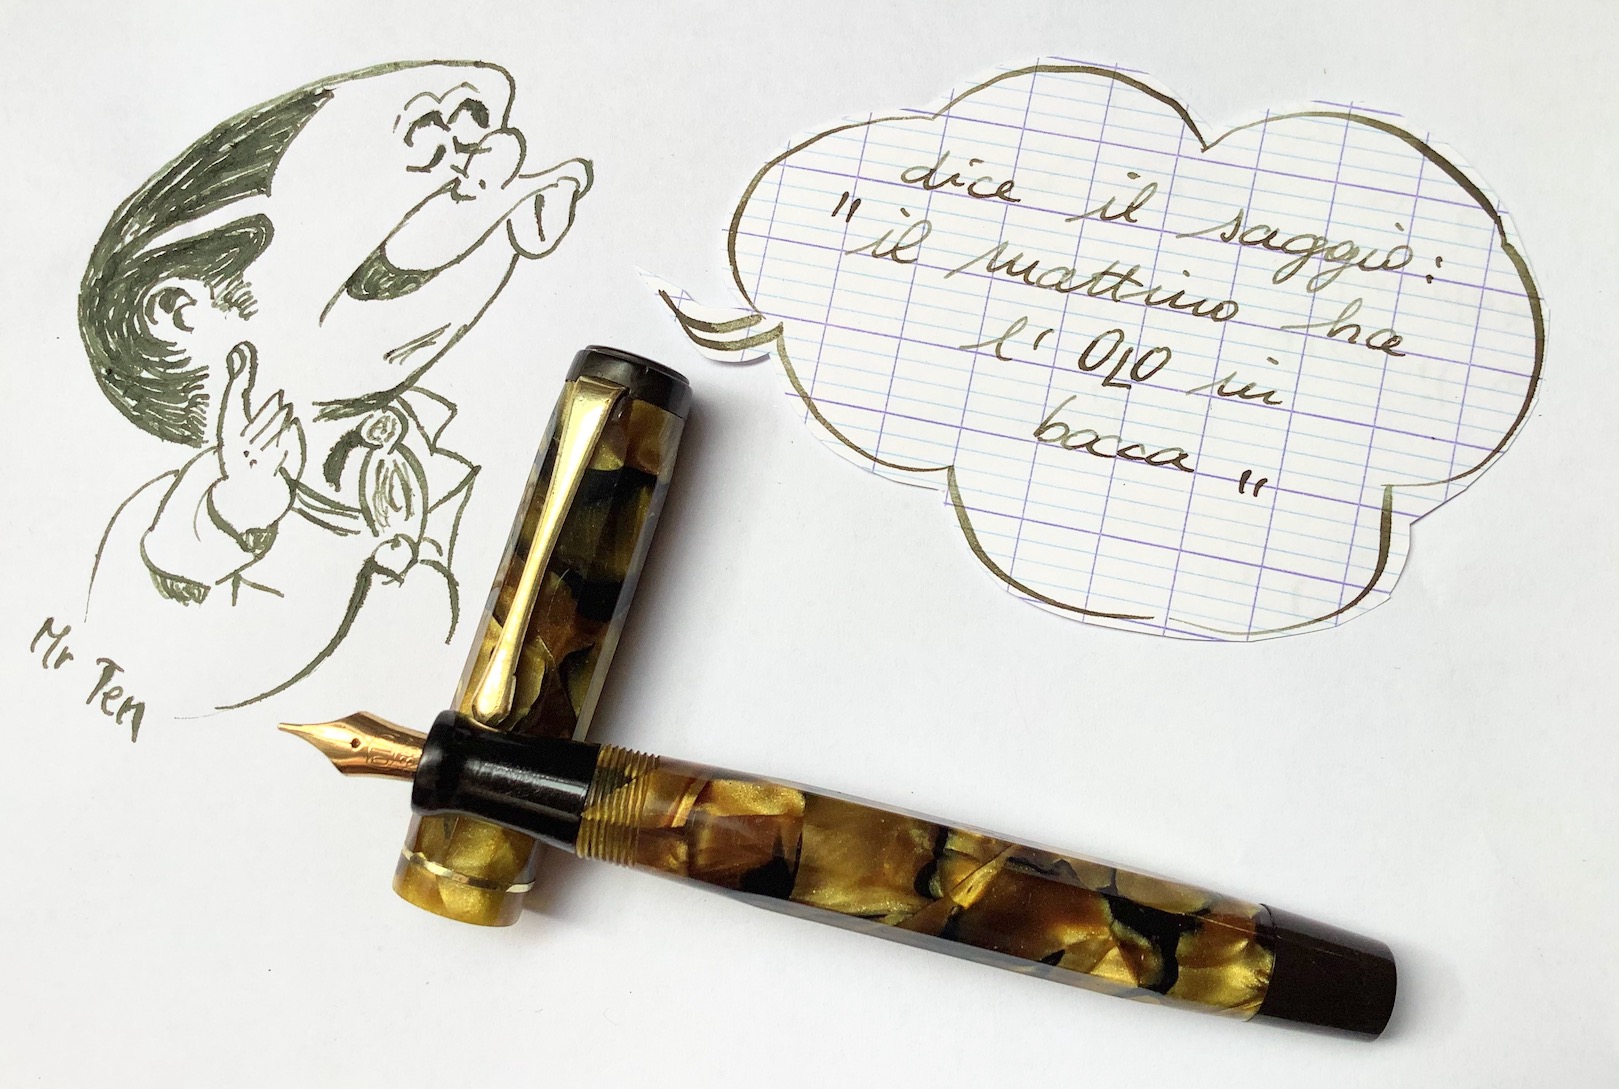 dice il saggio:
"il mattino ha
l' OLO in
bocca"
Mr Ten